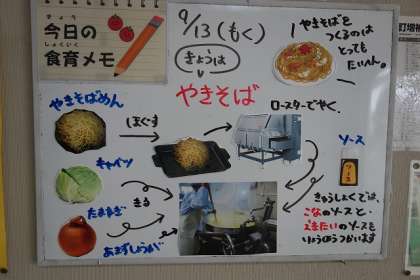 きょう
今日の
しょくいく
食育メモ
9/13(もく)
きょうは
やきそば
やきそばを
つくるのは
とっても
たいへん。
やきそばめん
ほぐす
ロースターでやく。
キャベツ
きる
たまねぎ
あまずしょうが
ソース
きゅうしょくでは、
こなのソースと、
えきたいのソースも
りょうほうつかいます